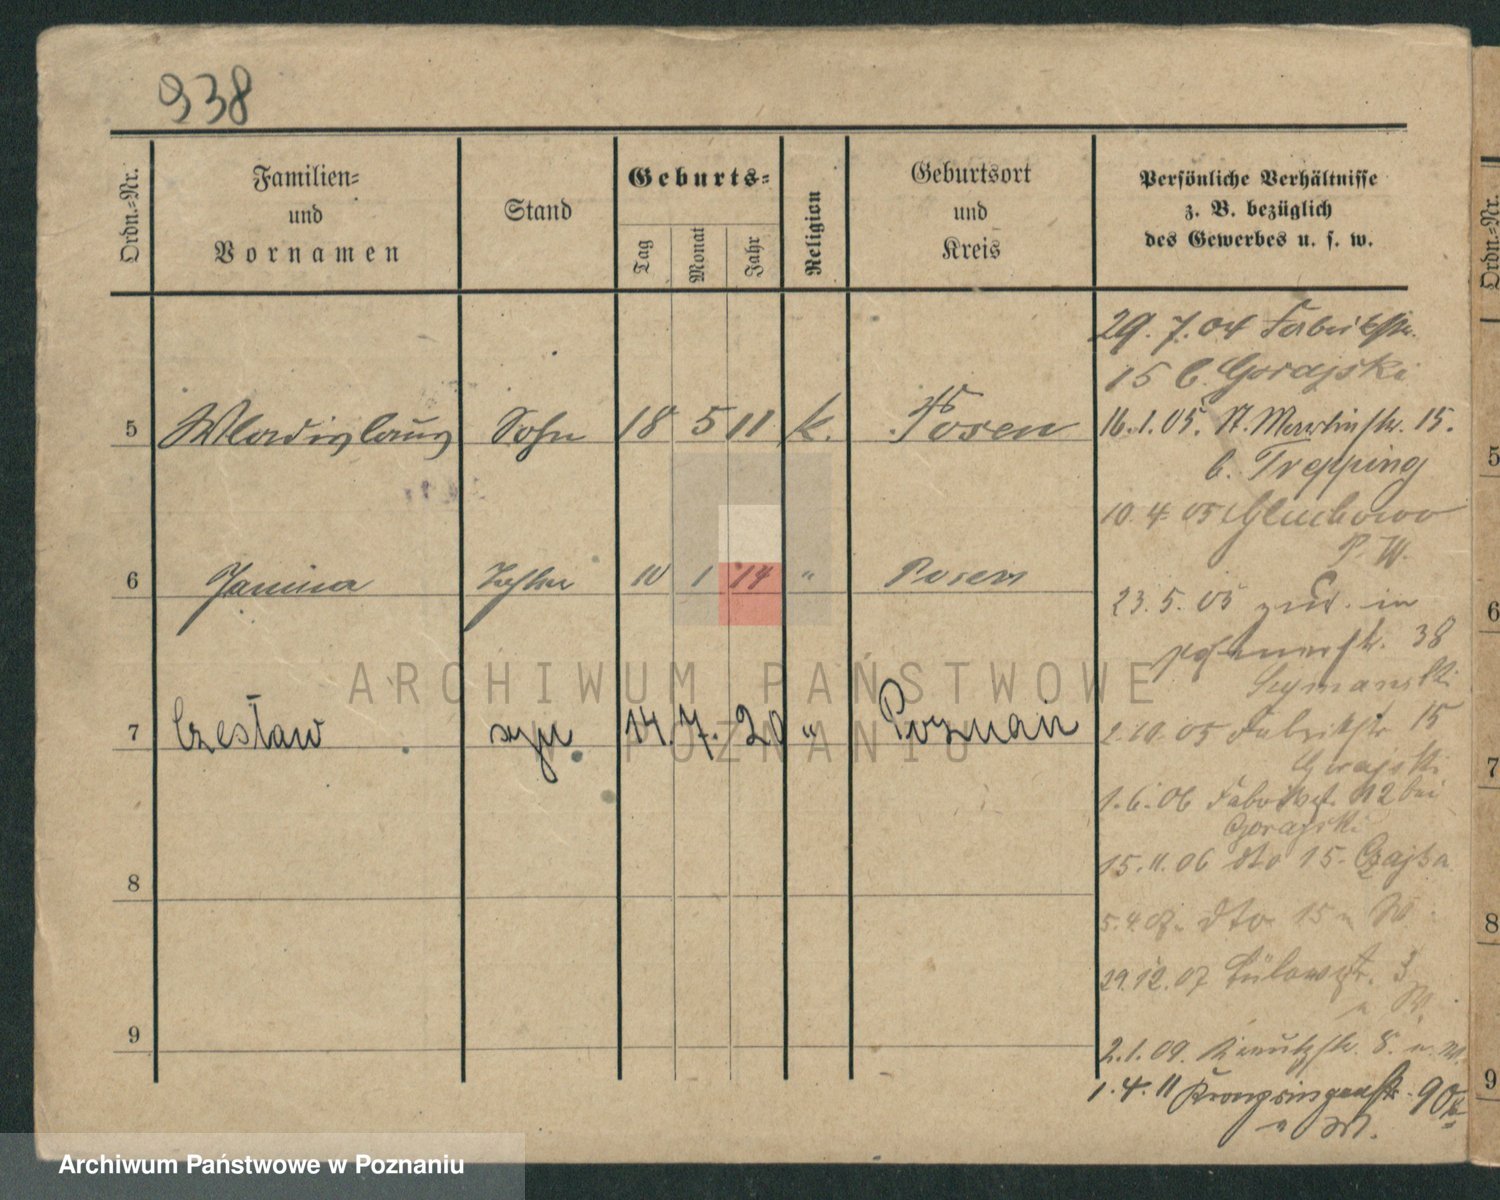 938
Ordn.-Nr.
Familien-
und
Vornamen
Stand
Geburts-
Tag
Monat
Jahr
Religion
Geburtsort
und
Kreis
Persönliche Verhältnisse
z. B. bezüglich
des Gewerbes u. s. w.
5 Wladislaus Sohn 18 5 11 k. Posen
6 Janina Tochter 10 1 14 " Posen
7 Czesław syn 14. 7. 20 " Poznań
8
9
29. 7. 04 Fabrikstr.
15 b. Gorajski
16. 1. 05. St. Martinstr. 15.
b. Trepping
10. 4. 05 Gluchowo
P. W.
23. 5. 05 zur. in
Posenerstr. 38
Szymanski
2. 10. 05 Fabrikstr 15
Gorajski
1. 6. 06 Fabrikstr. 12 bei
Gorajski
15. 11. 06 dto 15. Czajka
5. 4. 07. dto 15 n W.
29. 12. 07 Bülowstr. 3
n W.
2. 1. 09. Kreutzstr. 8. n. W.
1. 4. 11 Kronprinzenstr. 90
n W.
Ordn.-Nr.
5
6
7
8
9
ARCHIWUM PAŃSTWOWE
W POZNANIU
Archiwum Państwowe w Poznaniu